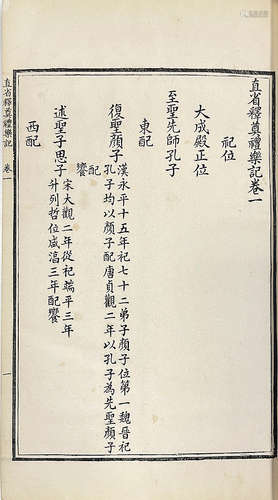 直省釋奠禮樂記卷一
祀位
大成殿正位
至聖先師孔子
東配
復聖顏子漢永平十五年祀七十二弟子顏子位第一魏晉祀
孔子均以顏子配唐貞觀二年以孔子為先聖顏子
配
饗
述聖子思子宋大觀二年從祀端平三年
升列哲位咸淳三年配饗
西配
直省釋奠禮樂記
卷一
一